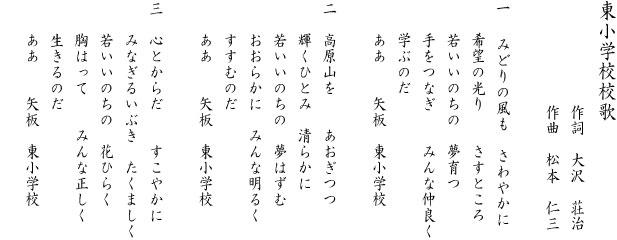 東小学校校歌
作詞 大沢 荘治
作曲 松本 仁三
一 みどりの風も さわやかに
希望の光り さすところ
若いいのちの 夢育つ
手をつなぎ みんな仲良く
学ぶのだ
ああ 矢板 東小学校
二 高原山を あおぎつつ
輝くひとみ 清らかに
若いいのちの 夢はずむ
おおらかに みんな明るく
すすむのだ
ああ 矢板 東小学校
三 心とからだ すこやかに
みなぎるいぶき たくましく
若いいのちの 花ひらく
胸はって みんな正しく
生きるのだ
ああ 矢板 東小学校